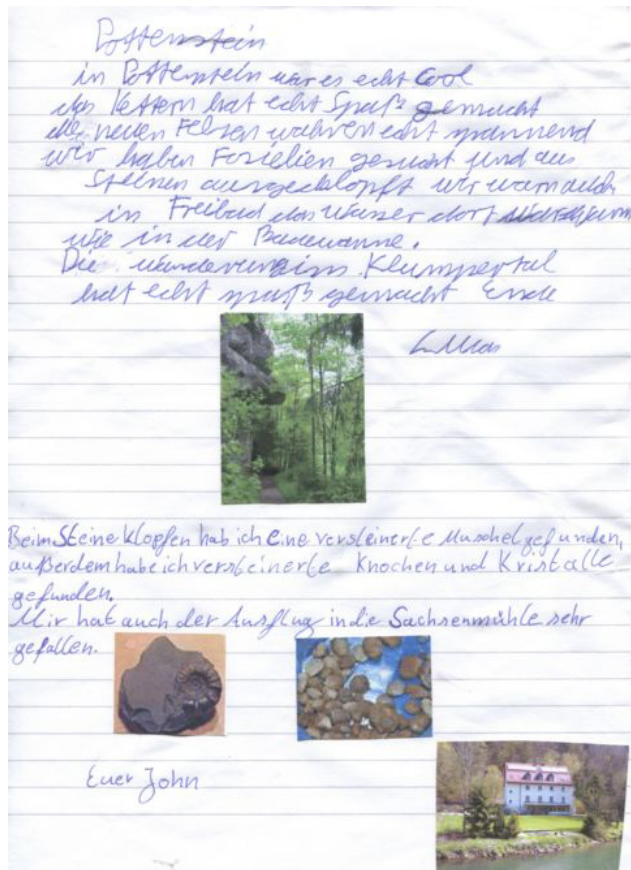 Pottenstein
in Pottenstein war es echt Cool
das Klettern hat echt Spaß gemacht
die neuen Felsen wahren echt spannend
wir haben Fozielien gesucht und aus
Steinen ausgeklopft wir warn auch
in Freibad das Wasser dort
wie in der Badewanne.
Die wanderung ins Klumpertal
hat echt spaß gemacht Ende
Beim Steine klopfen hab ich eine versteinerte Muschel gefunden,
außerdem habe ich versteinerte Knochen und Kristalle
gefunden.
Mir hat auch der Ausflug in die Sachsenmühle sehr
gefallen.
Euer John